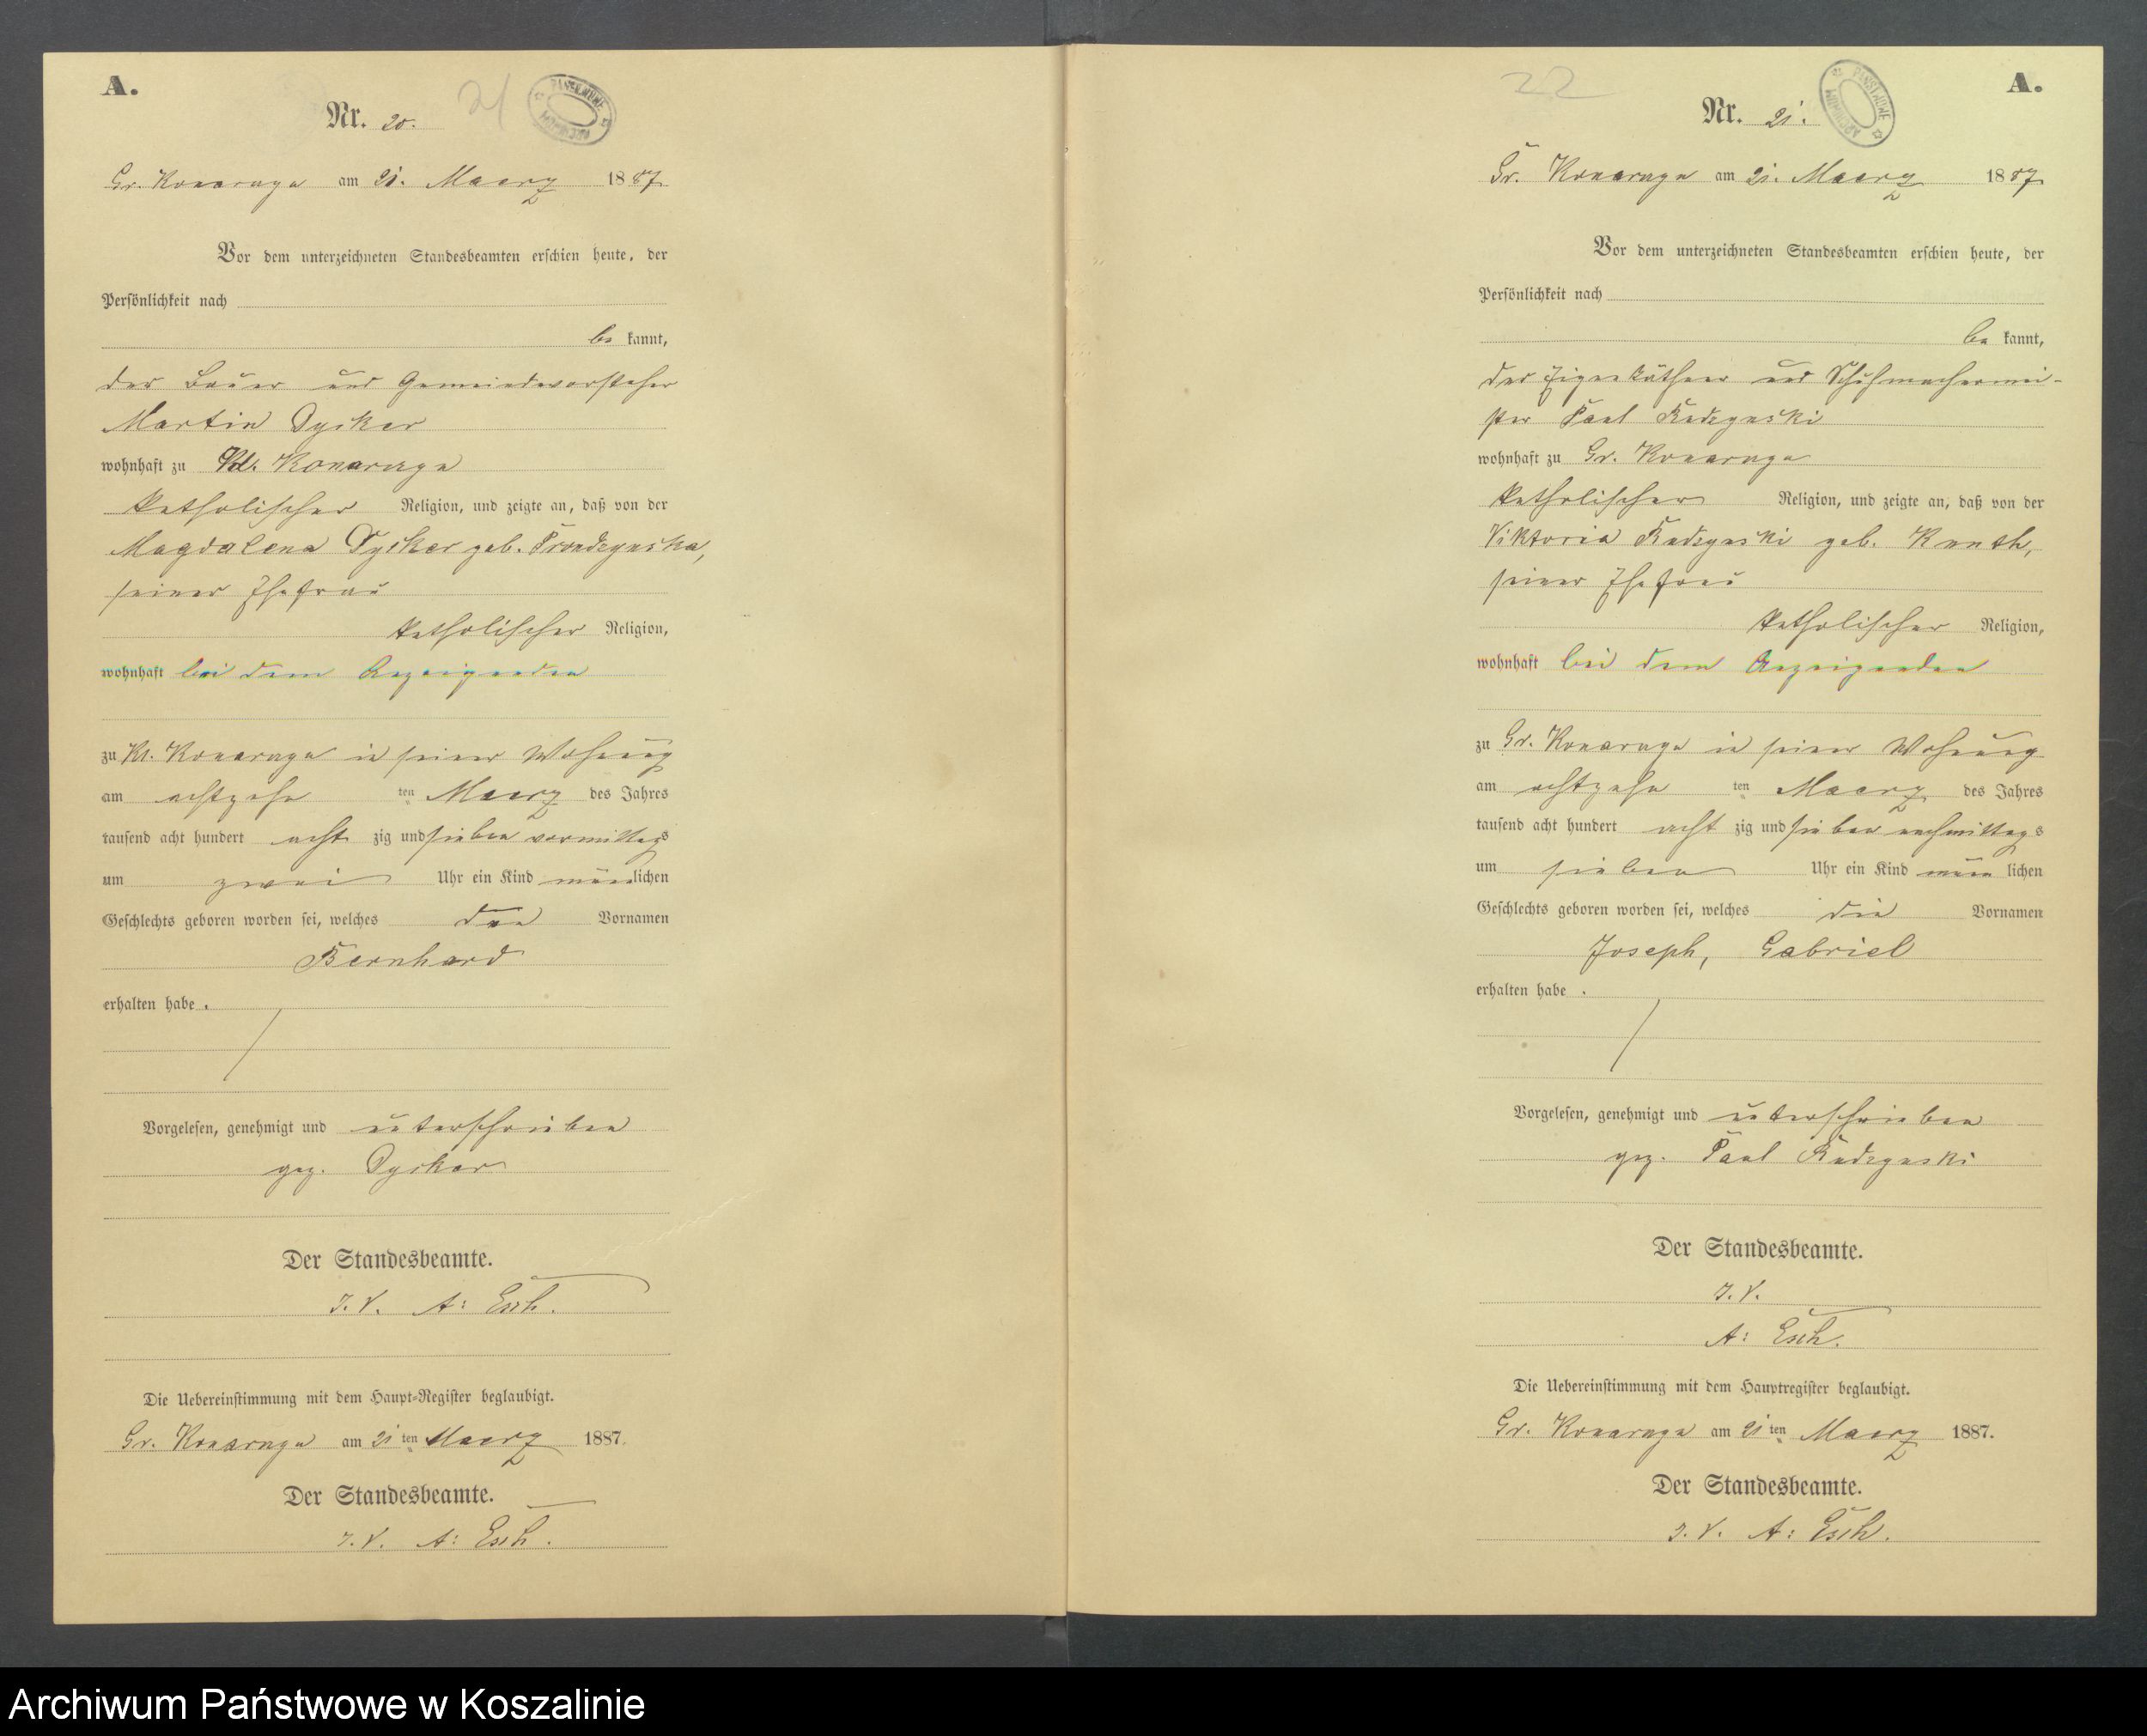 A.
Nr. 20.
21
Gr. Konarzyn am 21. Maerz 1887
Vor dem unterzeichneten Standesbeamten erschien heute, der
Persönlichkeit nach
be kannt,
der Bauer und Gemeindevorsteher
Martin
wohnhaft zu Kl. Konarczyn
katholischer Religion, und zeigte an, daß von der
Magdalena geb. Prondzynska,
seiner Ehefrau
katholischer Religion,
wohnhaft bei dem Anzeigenden
zu Kl. Konarzyn in seiner Wohnung
am achtzehn ten Maerz des Jahres
tausend acht hundert acht zig und sieben vormittags
um zwei Uhr ein Kind männlichen
Geschlechts geboren worden sei, welches den Vornamen
Bernhard
erhalten habe.
Vorgelesen, genehmigt und unterschrieben
gez.
Der Standesbeamte.
I. V. A: Esch.
Die Uebereinstimmung mit dem Haupt-Register beglaubigt.
Gr. Konarzyn am 21 ten Maerz 1887.
Der Standesbeamte.
I. V. A: Esch.
22
A.
Nr. 21.
Gr. Konarzyn am 21. Maerz 1887
Vor dem unterzeichneten Standesbeamten erschien heute, der
Persönlichkeit nach
be kannt,
der Eigenkäthner und Schuhmachermei-
ster Paul
wohnhaft zu Gr. Konarzyn
katholischer Religion, und zeigte an, daß von der
Viktoria geb.
seiner Ehefrau
katholischer Religion,
wohnhaft bei dem Anzeigenden
zu Gr. Konarzyn in seiner Wohnung
am achtzehn ten Maerz des Jahres
tausend acht hundert acht zig und sieben nachmittags
um sieben Uhr ein Kind männ lichen
Geschlechts geboren worden sei, welches die Vornamen
Joseph, Gabriel
erhalten habe.
Vorgelesen, genehmigt und unterschrieben
gez. Paul
Der Standesbeamte.
I. V.
A: Esch.
Die Uebereinstimmung mit dem Hauptregister beglaubigt.
Gr. Konarzyn am 21 ten Maerz 1887.
Der Standesbeamte.
I. V. A: Esch.
Archiwum Państwowe w Koszalinie